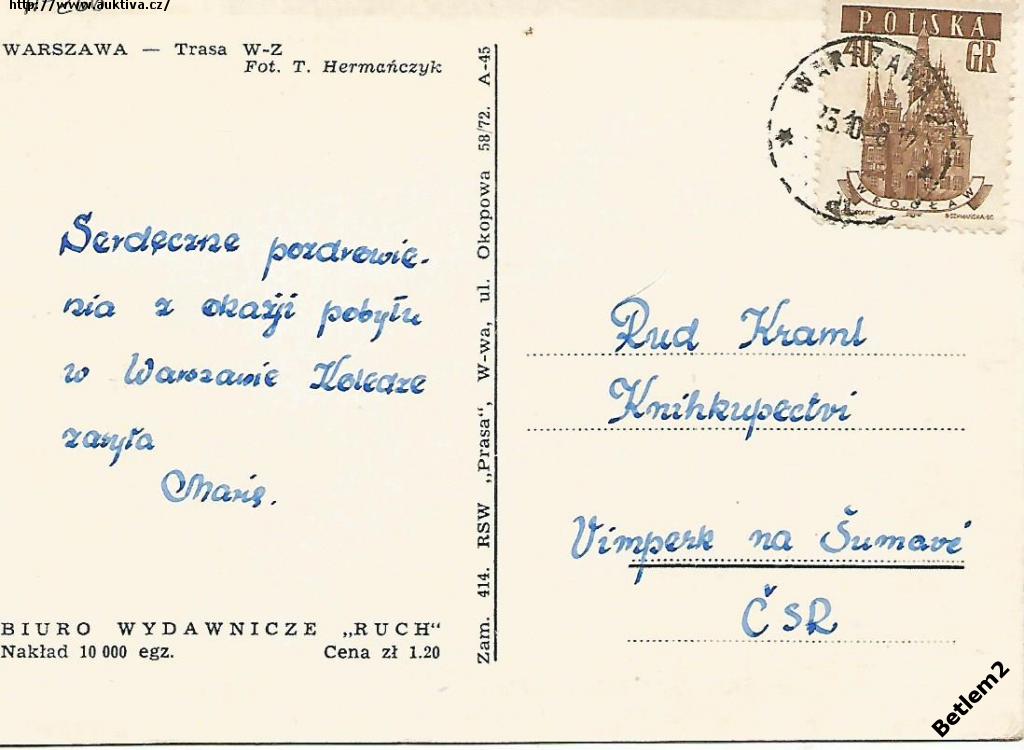 http://www.auktiva.cz/
WARSZAWA — Trasa W-Z
Fot. T. Hermańczyk
POLSKA
40 GR
WROCŁAW
WARSZAWA
Serdęczne pozdrowie-
nia z okazji pobytu
w Warszawie Koledze
zasyła
Marię.
Zam. 414. RSW „Prasa", W-wa, ul. Okopowa 58/72. A-45
Rud Kraml
Knihkupectvi
Vimperk na Šumavé
ČSR
BIURO WYDAWNICZE „RUCH"
Nakład 10 000 egz.
Cena zł 1.20
Betlem2